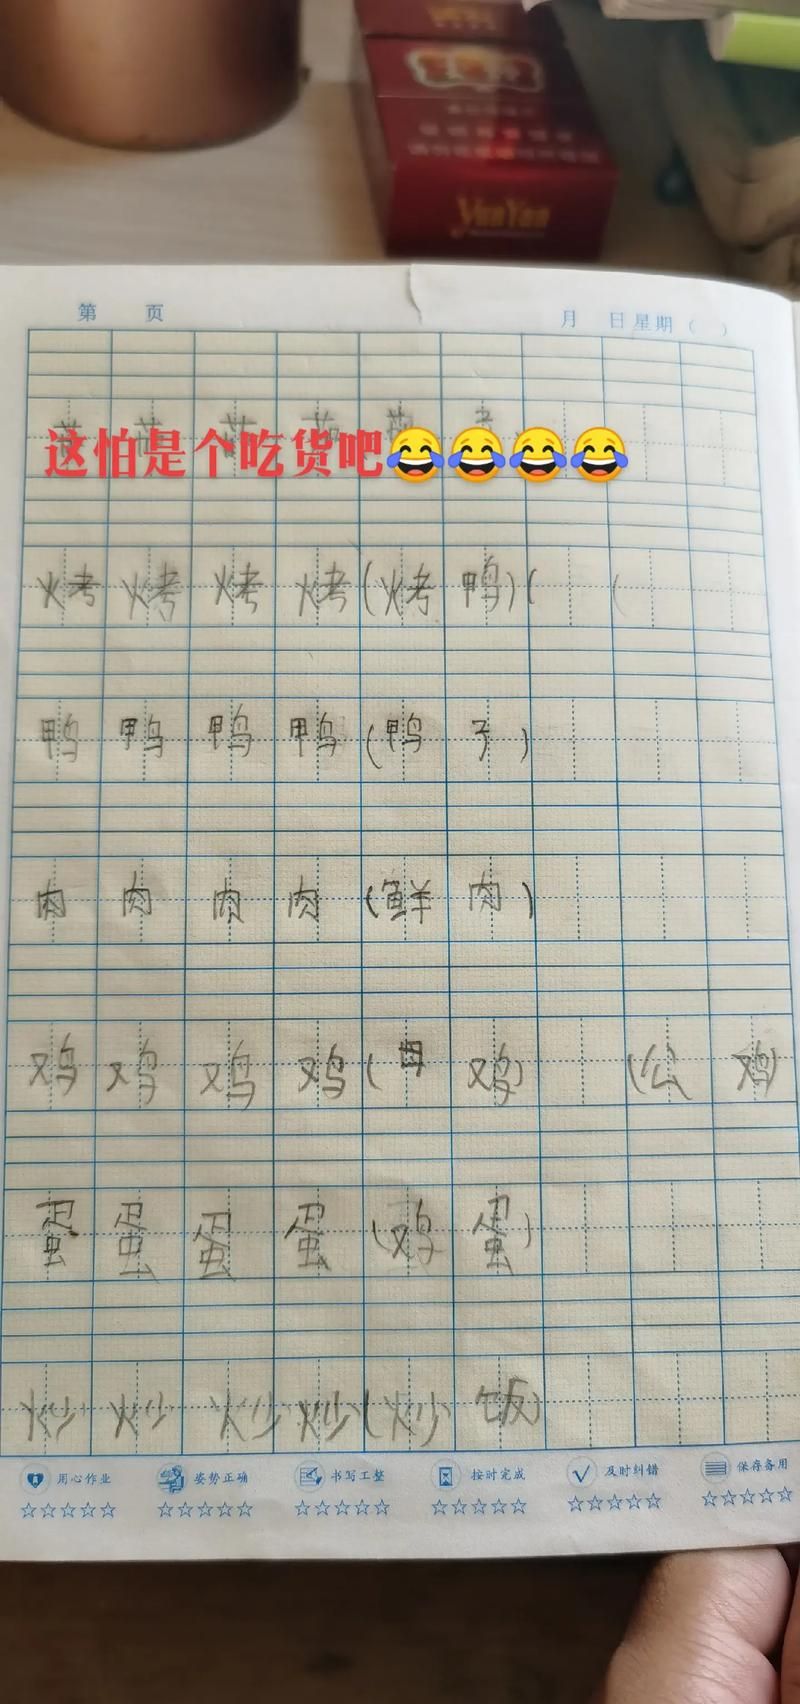 YunYan
第 页 月 日 星期( )
茄 茄 茄 茄 茄 子
这怕是个吃货吧😂😂😂😂
烤 烤 烤 烤 (烤 鸭) ( (
鸭 鸭 鸭 鸭 (鸭 子)
肉 肉 肉 肉 (鲜 肉)
鸡 鸡 鸡 鸡 (母 鸡) (公 鸡)
蛋 蛋 蛋 蛋 (鸡 蛋)
炒 炒 炒 炒 (炒 饭)
用心作业 姿势正确 书写工整 按时完成 及时纠错 保存备用
☆☆☆☆☆ ☆☆☆☆☆ ☆☆☆☆☆ ☆☆☆☆☆ ☆☆☆☆☆ ☆☆☆☆☆